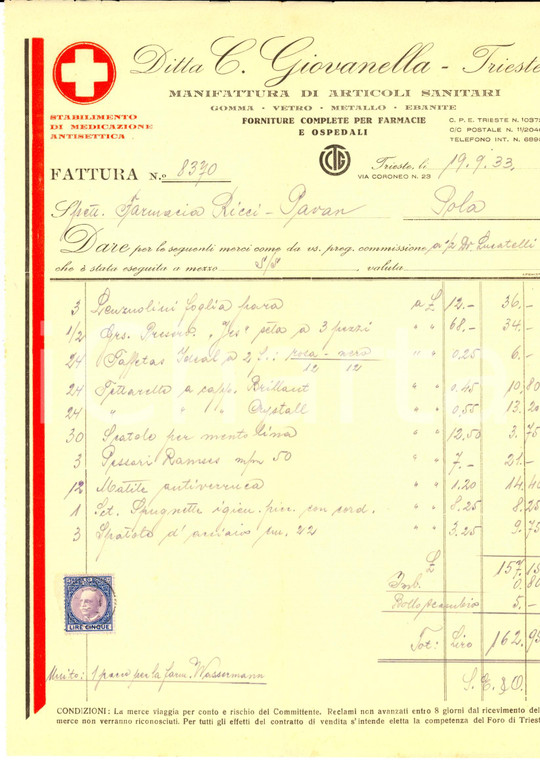 Ditta C. Giovanella - Trieste
MANIFATTURA DI ARTICOLI SANITARI
GOMMA - VETRO - METALLO - EBANITE
FORNITURE COMPLETE PER FARMACIE
E OSPEDALI
STABILIMENTO
DI MEDICAZIONE
ANTISETTICA
C. P. E. TRIESTE N. 1037
C/C POSTALE N. 11/204
TELEFONO INT. N. 689
FATTURA N.o 8370
Trieste, li 19.9.33.
VIA CORONEO N. 23
Spett. Farmacia Ricci - Pavan Pola
Dare per le seguenti merci come da vs. preg. commissione a/p Dr.
che è stata eseguita a mezzo S/S, valuta
3 foglia para a £ 12.- 36.-
1/2 Grs. "Yes" seta a 3 pezzi " " 68.- 34.-
24 Taffetas Ideal a 2 f.: rosa - nero " " 0,25 6.-
12 12
24 a capp. Brillant " " 0.45 10,80
24 " " " Crystall " " 0,55 13.20
30 Spatole per mento Lima " " 12,50 3.75
3 Pessari Ramses 50 " " 7.- 21.-
12 Matite antiverruca " " 1.20 14.40
1 Sct. Spugnette igien. picc. con cord. " " 8.25 8.25
3 Spatole d'acciaio 22 " " 3.25 9.75
£ 157,15
Imb. 0,80
Bollo scambio 5.-
Tot: Lire 162.95
LIRE CINQUE
Unito: 1 pacco per la farm. Wassermann
S. E. & O.
CONDIZIONI: La merce viaggia per conto e rischio del Committente. Reclami non avanzati entro 8 giorni dal ricevimento del
merce non verranno riconosciuti. Per tutti gli effetti del contratto di vendita s'intende eletta la competenza del Foro di Triest